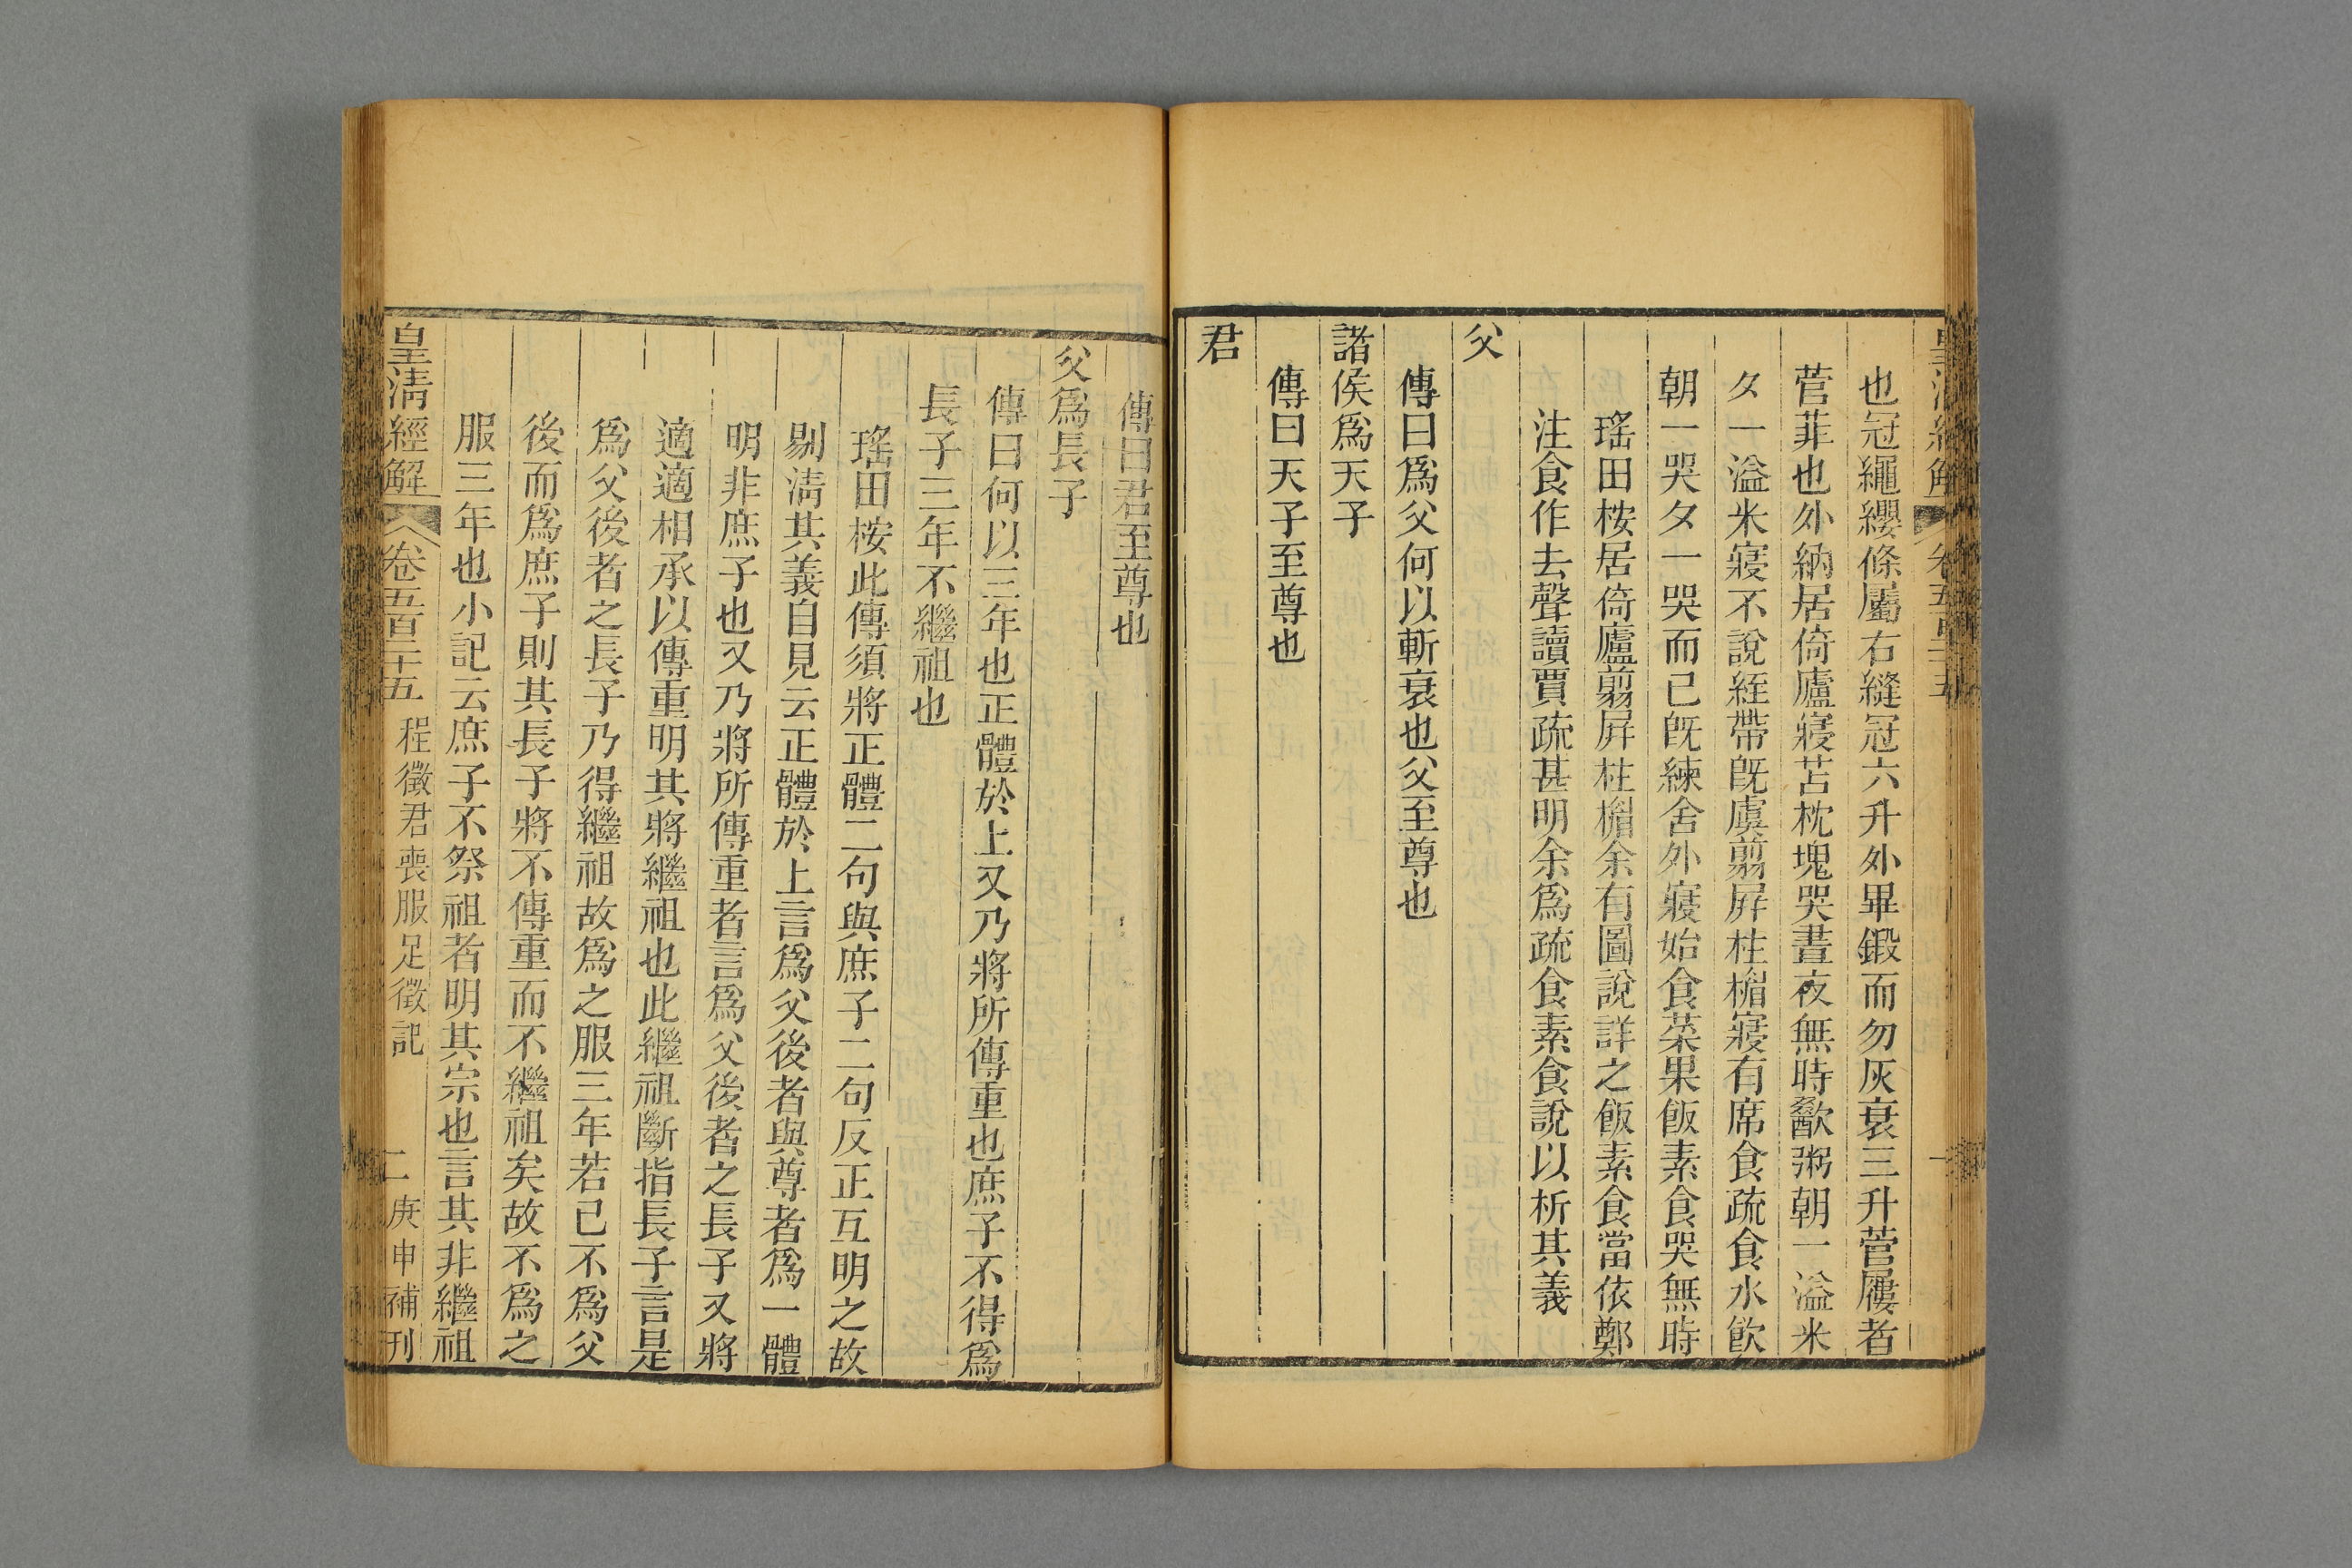 也冠繩纓條屬右縫冠六升外畢鍛而勿灰衰三升菅屨者
菅菲也外納居倚廬寢苫枕塊哭晝夜無時歠粥朝一溢米
夕一溢米寢不說絰帶旣虞翦屏柱楣寢有席食疏食水飮
朝一哭夕一哭而已旣練舍外寢始食菜果飯素食哭無時
瑤田桉居倚廬翦屏柱楣余有圖說詳之飯素食當依鄭
注食作去聲讀賈疏甚明余爲疏食素食說以析其義
父
傳曰爲父何以斬衰也父至尊也
諸侯爲天子
傳曰天子至尊也
君
傳曰君至尊也
父爲長子
傳曰何以三年也正體於上又乃將所傳重也庶子不得爲
長子三年不繼祖也
瑤田桉此傳須將正體二句與庶子二句反正互明之故
剔淸其義自見云正體於上言爲父後者與尊者爲一體
明非庶子也又乃將所傳重者言爲父後者之長子又將
適適相承以傳重明其將繼祖也此繼祖斷指長子言是
爲父後者之長子乃得繼祖故爲之服三年若已不爲父
後而爲庶子則其長子將不傳重而不繼祖矣故不爲之
服三年也小記云庶子不祭祖者明其宗也言其非繼祖
皇淸經解 卷五百二十五 程徵君喪服足徵記 二 庚申補刊